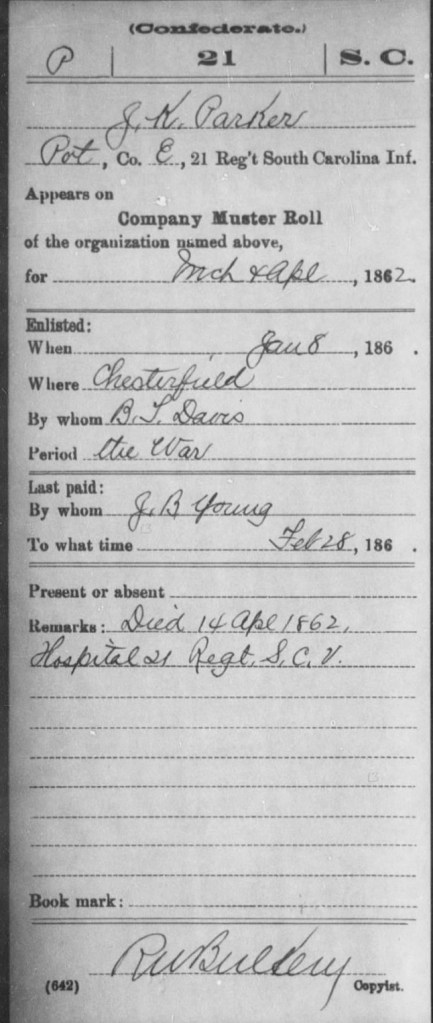 (Confederate.)
P | 21 | S. C.
J. K. Parker
Pvt, Co. E, 21 Reg't South Carolina Inf.
Appears on
Company Muster Roll
of the organization named above,
for Mch & Apl, 1862.
Enlisted:
When Jan 8, 186 .
Where Chesterfield
By whom B. T. Davis
Period the War
Last paid:
By whom J. B Young
To what time Feb 28, 186 .
Present or absent
Remarks: Died 14 Apl 1862,
Hospital 21 Regt. S. C. V.
Book mark:
(642) Copyist.